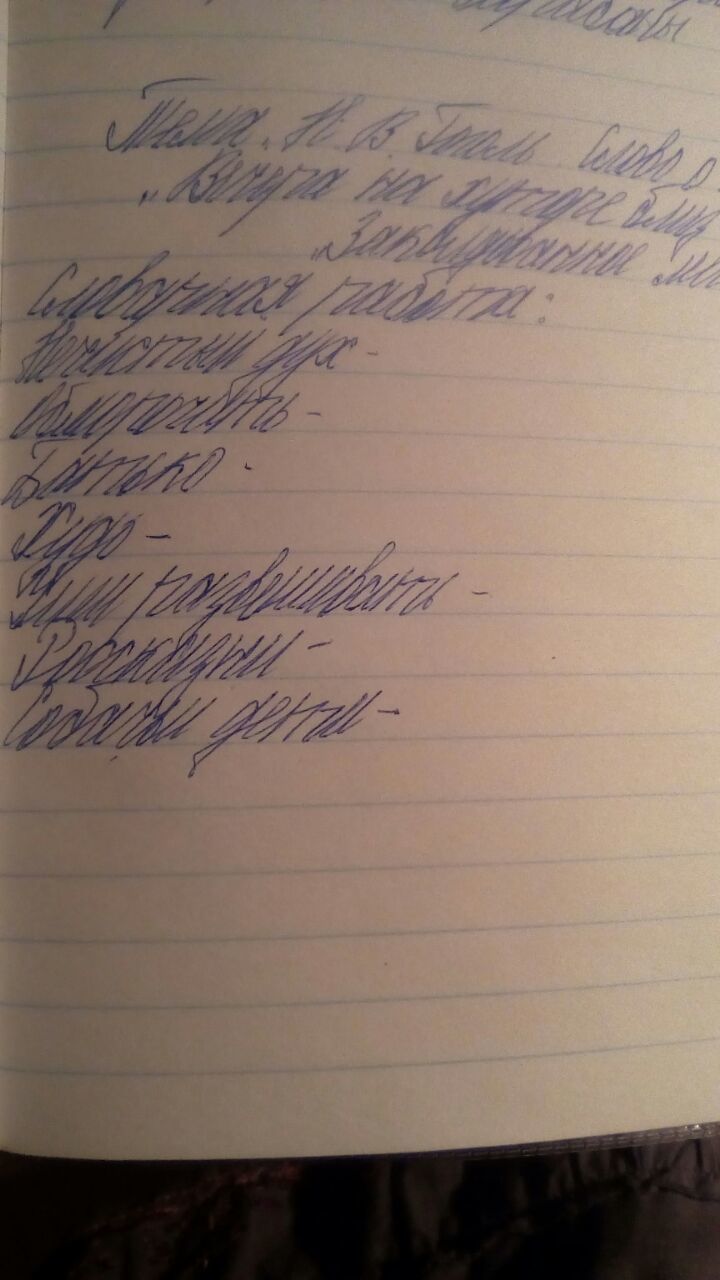 Тема. Н. В. Гоголь. Слово о
"Вечера на хуторе близ
"Заколдованное ме
Словарная работа:
Нечистый дух-
Обморочить-
Батько-
Худо-
Уши развешивать-
Россказни-
Собачьи дети-